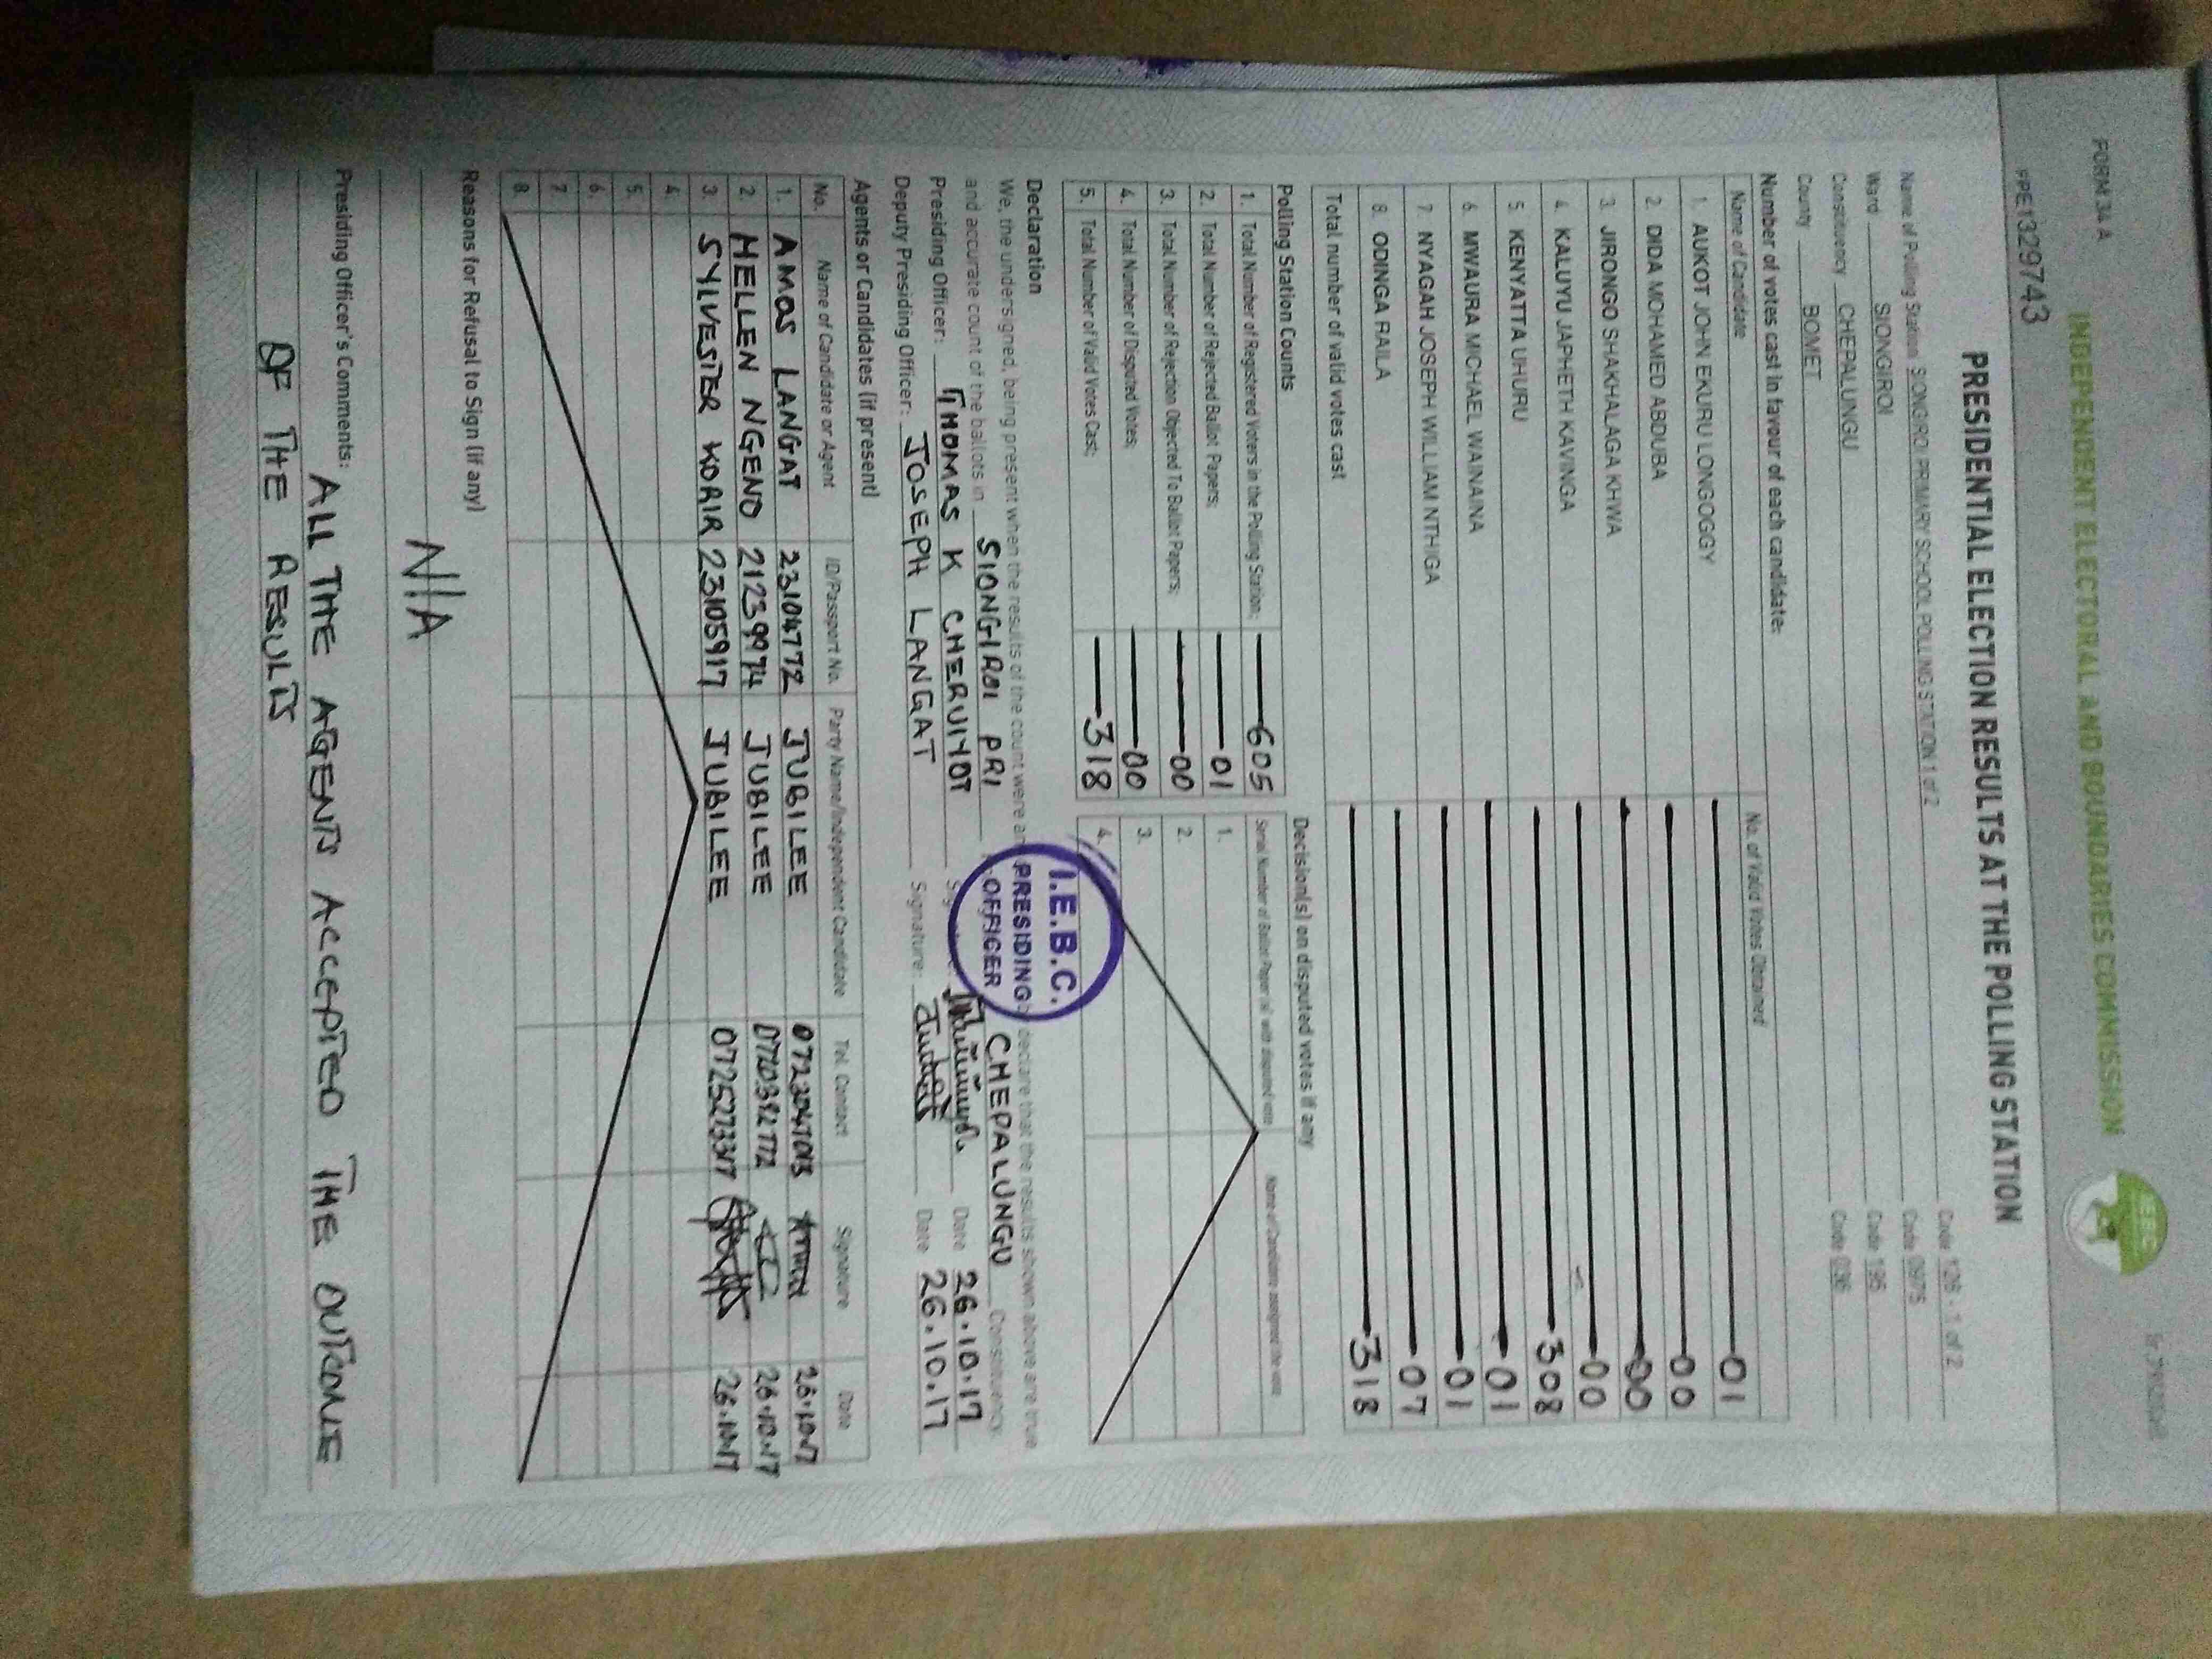 FORM 34 A
INDEPENDENT ELECTORAL AND BOUNDARIES COMMISSION
IEBC
PPE1329743
PRESIDENTIAL ELECTION RESULTS AT THE POLLING STATION
Name of Polling Station SIONGIROI PRIMARY SCHOOL POLLING STATION 1 of 2 Code 129 - 1 of 2
Ward SIONGIROI Code 0975
Constituency CHEPALUNGU Code 195
County BOMET Code 036
Number of votes cast in favour of each candidate:
Name of Candidate No. of Valid Votes Obtained
1. AUKOT JOHN EKURU LONGOGGY 01
2. DIDA MOHAMED ABDUBA 00
3. JIRONGO SHAKHALAGA KHWA 00
4. KALUYU JAPHETH KAVINGA 00
5. KENYATTA UHURU 308
6. MWAURA MICHAEL WAINAINA 01
7. NYAGAH JOSEPH WILLIAM NTHIGA 01
8. ODINGA RAILA 07
Total number of valid votes cast 318
Polling Station Counts
1. Total Number of Registered Voters in the Polling Station; 605
2. Total Number of Rejected Ballot Papers; 01
3. Total Number of Rejection Objected To Ballot Papers; 00
4. Total Number of Disputed Votes; 00
5. Total Number of Valid Votes Cast; 318
Decision(s) on disputed votes if any
Serial Number of Ballot Paper (s) with disputed vote Name of Candidate assigned the vote
1.
2.
3.
4.
Declaration
We, the undersigned, being present when the results of the count were declare that the results shown above are true
and accurate count of the ballots in SIONGIROI PRI CHEPALUNGU Constituency.
I.E.B.C.
PRESIDING
OFFICER
Presiding Officer: THOMAS K CHERUIYOT Date 26.10.17
Deputy Presiding Officer: JOSEPH LANGAT Signature: Date 26.10.17
Agents or Candidates (if present)
No. Name of Candidate or Agent ID/Passport No. Party Name/Independent Candidate Tel. Contact Signature Date
1. AMOS LANGAT 23104772 JUBILEE 26.10.17
2. HELLEN NGENO 21239974 JUBILEE 0720392772 26.10.17
3. SYLVESTER KORIR 23105917 JUBILEE 0725273317 26.10.17
4.
5.
6.
7.
8.
Reasons for Refusal to Sign (if any)
N/A
Presiding Officer's Comments: ALL THE AGENTS ACCEPTED THE OUTCOME
OF THE RESULTS